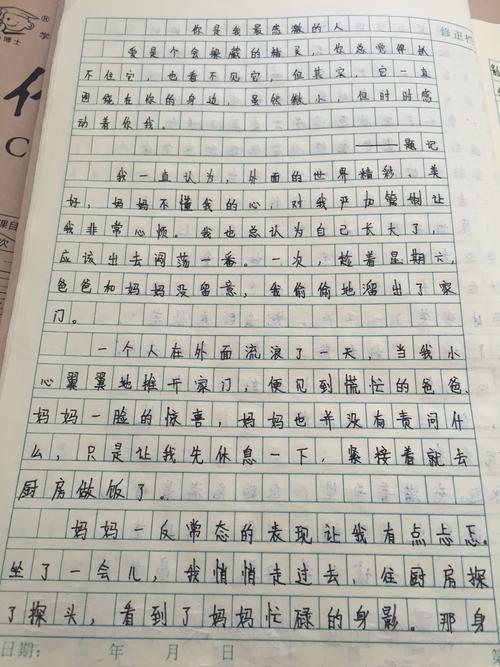 你是我最感激的人
爱是个会躲藏的精灵,你总觉得抓
不住它,也看不见它,但其实,它一直
围绕在你的身边,虽然微小,但时时感
动着你我。
——题记
我一直认为,外面的世界精彩、美
好,妈妈不懂我的心,对我严加管制让
我非常心烦。我也总认为自己长大了,
应该出去闯荡一番。一次,趁着星期六,
爸爸和妈妈没留意,我偷偷地溜出了家
门。
一个人在外面流浪了一天,当我小
心翼翼地推开家门,便见到慌忙的爸爸、
妈妈一脸的惊喜,妈妈也并没有责问什
么,只是让我先休息一下,紧接着就去
厨房做饭了。
妈妈一反常态的表现让我有点忐忑。
坐了一会儿,我悄悄走过去,往厨房探
了探头,看到了妈妈忙碌的身影。那身
日期: 年 月 日
博士
®
学
C
课目
次